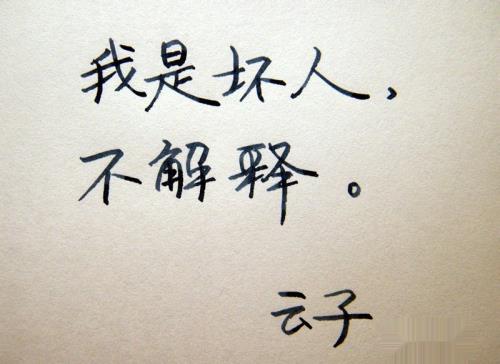 我是坏人，
不解释。
云子